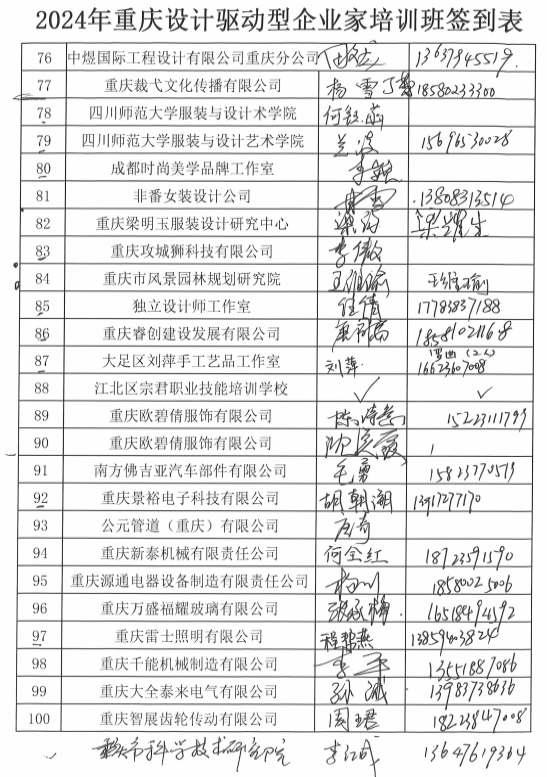 2024年重庆设计驱动型企业家培训班签到表
76 中煜国际工程设计有限公司重庆分公司 13637945519.
77 重庆裁弋文化传播有限公司 杨雪 18580233300
78 四川师范大学服装与设计术学院
79 四川师范大学服装与设计艺术学院 兰波 15696530028
80 成都时尚美学品牌工作室 李
81 非番女装设计公司 13808313514
82 重庆梁明玉服装设计研究中心
83 重庆攻城狮科技有限公司 李傲
84 重庆市风景园林规划研究院 王维瑜 王维瑜
85 独立设计师工作室 任倩 17783837188
86 重庆睿创建设发展有限公司 18581021168
87 大足区刘萍手工艺品工作室 刘萍 16623607008
88 江北区宗君职业技能培训学校 ✓ ✓
89 重庆欧碧倩服饰有限公司 15223111799
90 重庆欧碧倩服饰有限公司
91 南方佛吉亚汽车部件有限公司 毛勇 15823770579
92 重庆景裕电子科技有限公司 胡朝湖 13917277170
93 公元管道（重庆）有限公司 唐奇
94 重庆新泰机械有限责任公司 何全红 18723591590
95 重庆源通电器设备制造有限责任公司 18580025006
96 重庆万盛福耀玻璃有限公司 16518494592
97 重庆雷士照明有限公司 程燕 13859403824
98 重庆千能机械制造有限公司 李平 13551887086
99 重庆大全泰来电气有限公司 孙诚 13983738636
100 重庆智展齿轮传动有限公司 周珺 18223847008
✓ 重庆市科学技术研究院 李江 13647619364